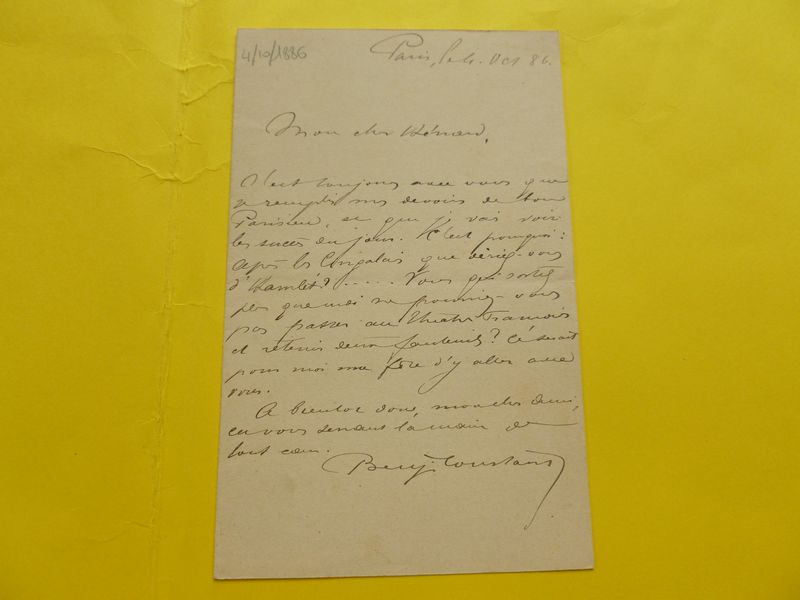 4/10/1886
Paris, le 4. Oct 86.
Mon cher Hénard,
C'est toujours avec vous que
je remplis mes devoirs de bon
Parisien, et que je vais voir
les succès du jour. C'est pourquoi :
après les Cingalais que dirie-vous
d'Hamlet? ..... Vous qui sortez
plus que moi ne pourriez-vous
pas passer au Théâtre Français
et retenir deux fauteuils? Ce serait
pour moi une fête d'y aller avec
vous.
A bientôt donc, mon cher ami,
en vous serrant la main de
tout cœur.
Benj. Constant